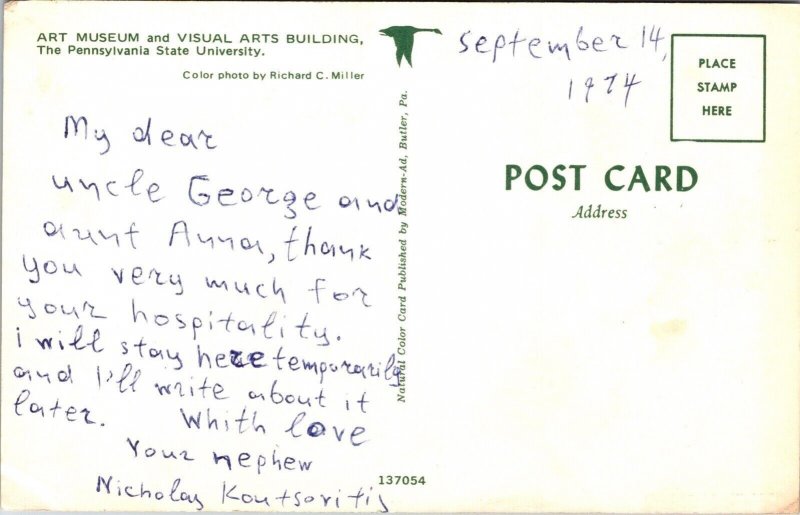 ART MUSEUM and VISUAL ARTS BUILDING,
The Pennsylvania State University.
Color photo by Richard C. Miller
September 14,
1974
PLACE
STAMP
HERE
POST CARD
Address
My dear
uncle George and
aunt Anna, thank
you very much for
your hospitality.
i will stay here temporarily
and I'll write about it
later. Whith love
Your nephew
Nicholas Koutsoritis
Natural Color Card Published by Modern-Ad, Butler, Pa.
137054